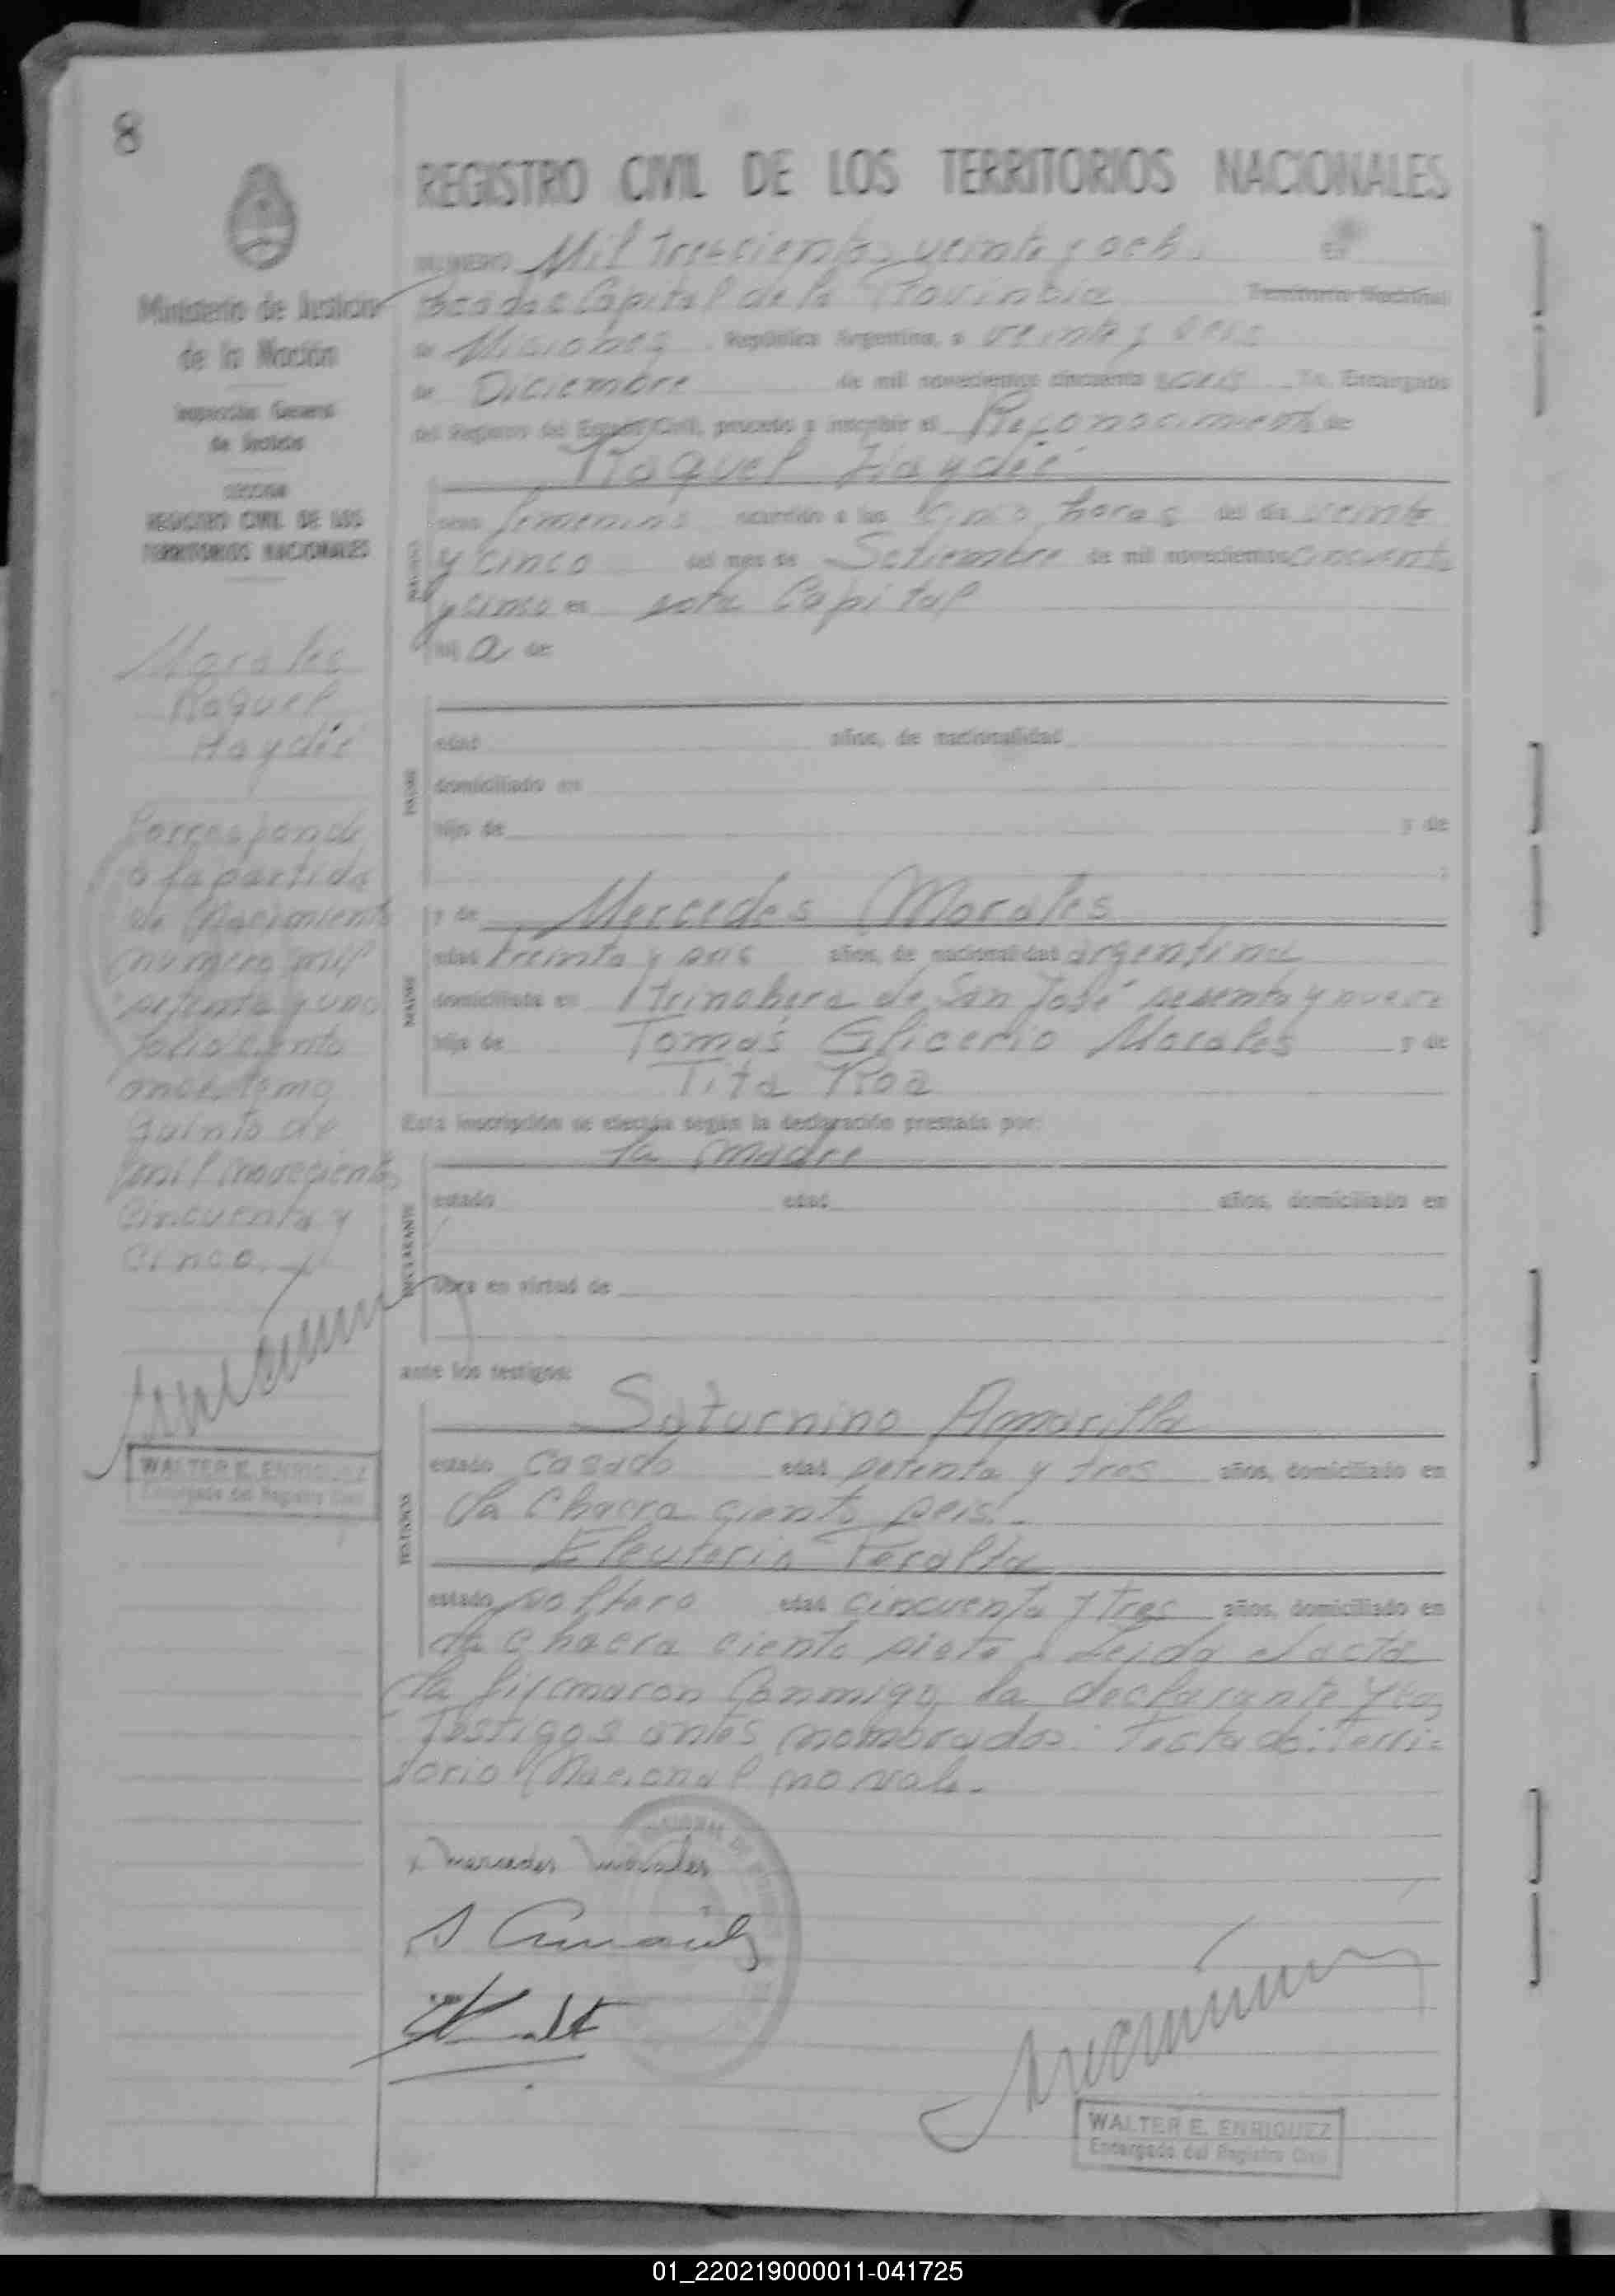 8
REGISTRO CIVIL DE LOS TERRITORIOS NACIONALES
NUMERO Mil trescientos veinte y ocho En
Posadas Capital de la Provincia Territorio Nacional
de Misiones, República Argentina, a veinte y seis
de Diciembre de mil novecientos cincuenta y seis Yo, Encargado
del Registro del Estado Civil, procedo a inscribir el Reconocimiento de
Raquel Haydée
sexo femenino ocurrido a las cinco horas del día veinte
y cinco del mes de Setiembre de mil novecientos cincuenta
y cinco en esta Capital
hij a de
edad años, de nacionalidad
domiciliado en
hijo de y de
y de Mercedes Morales
edad treinta y seis años, de nacionalidad argentina
domiciliada en Trinchera de San José sesenta y nueve
hija de Tomás Glicerio Morales y de
Tita Roa
Esta inscripción se efectúa según la declaración prestada por:
la madre
estado edad años, domiciliado en
Obra en virtud de
ante los testigos:
Saturnino Amarilla
estado casado edad setenta y tres años, domiciliado en
la Chacra ciento seis.
Eleuterio Peralta
estado soltero edad cincuenta y tres años, domiciliado en
la chacra ciento siete. Leida el acta
la firmaron conmigo, la declarante y los
testigos antes nombrados. Testado: Terri-
torio Nacional no vale.
Mercedes Morales
WALTER E. ENRIQUEZ
Encargado del Registro Civil
Ministerio de Justicia
de la Nación
Inspección General
de Justicia
SECCION
REGISTRO CIVIL DE LOS
TERRITORIOS NACIONALES
Morales
Raquel
Haydée
Corresponde
a la partida
de Nacimiento
número mil
setenta y uno
folio ciento
once tomo
quinto de
mil novecientos
cincuenta y
cinco.
WALTER E. ENRIQUEZ
Encargado del Registro Civil
NACIMIENTO
PADRE
MADRE
DECLARANTE
TESTIGOS
01_220219000011-041725